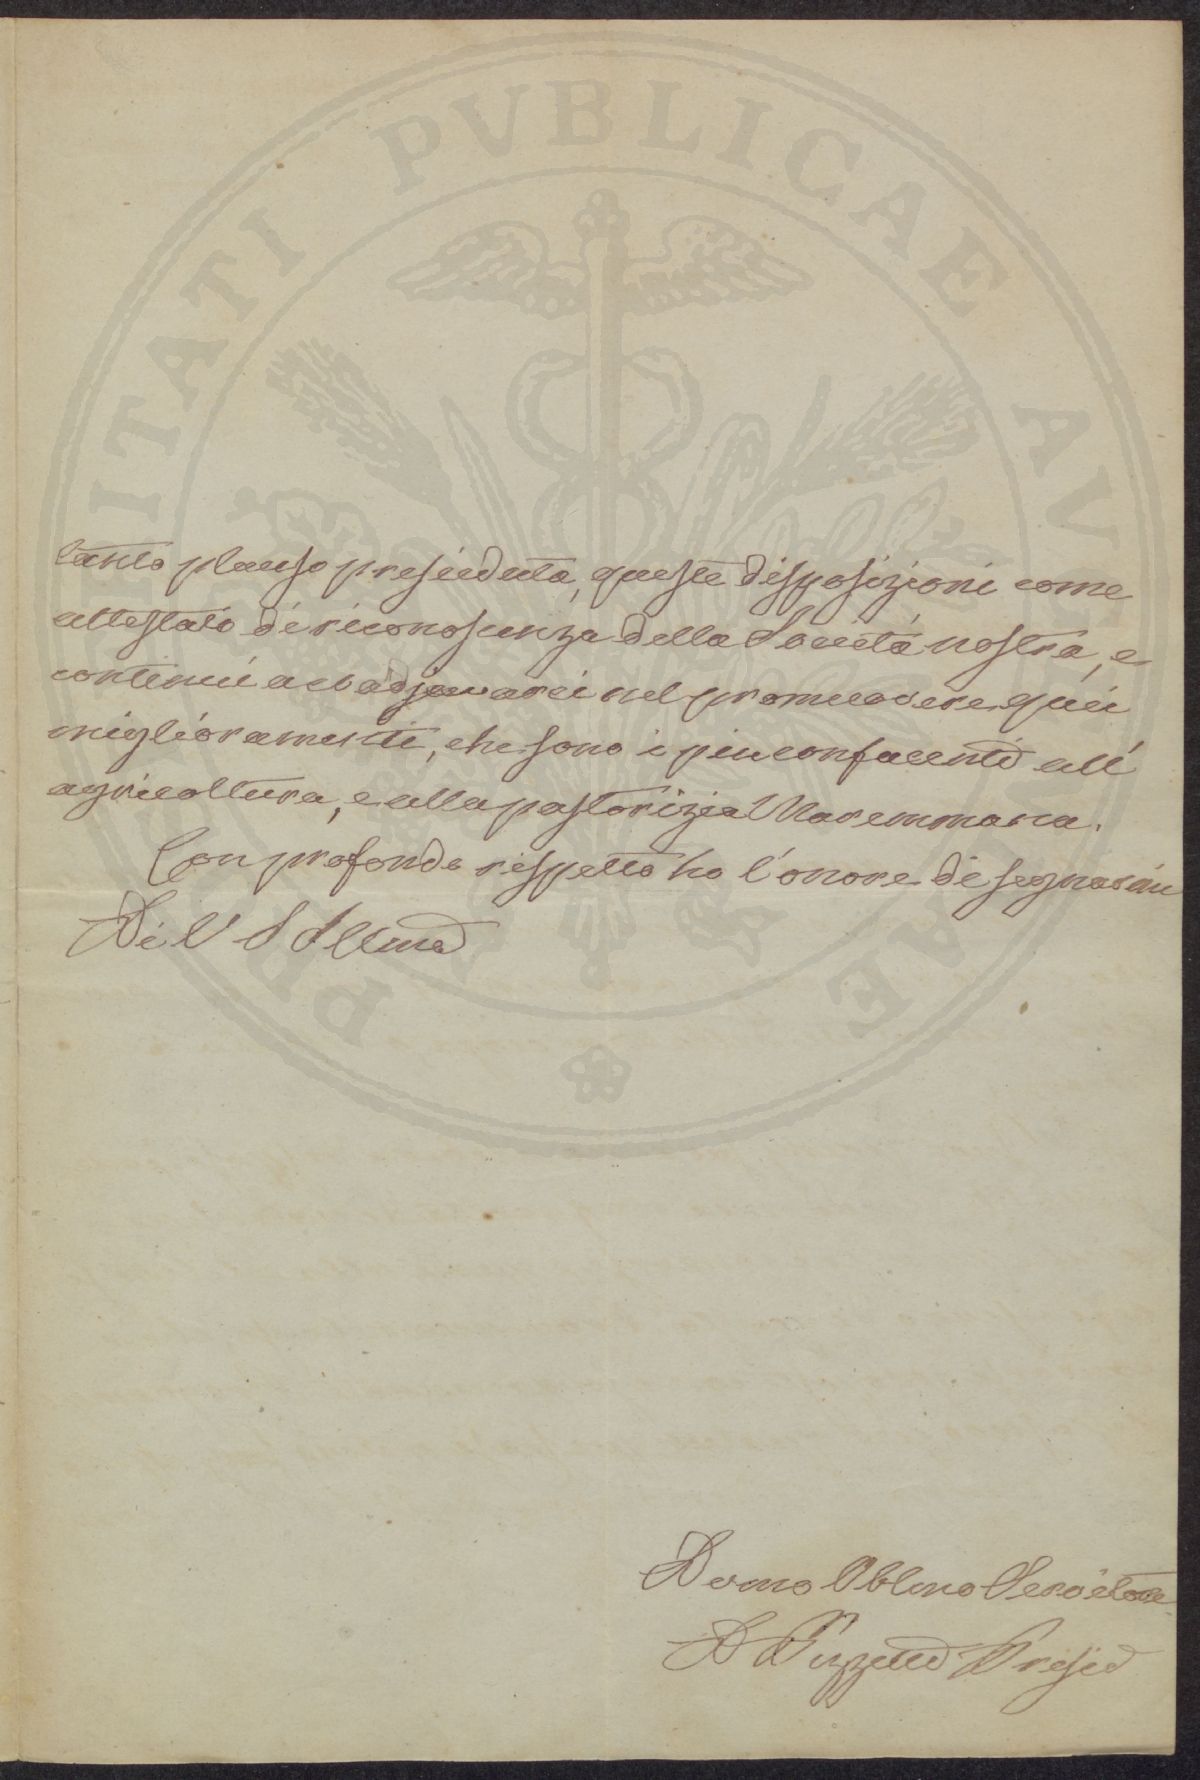 tanto plauso presieduta, queste disposizioni come
attestato di riconoscenza della Società nostra, e
continui ad adjuvarci nel promuovere quei
miglioramenti, che sono i piu confacenti all'
agricoltura, e alla pastorizia Maremmana.
Con profondo rispetto ho l'onore di segnarmi
Di V S Illma
Devmo Oblmo Servitore
Presid
PROSPERITATI PVBLICAE AVGENDAE